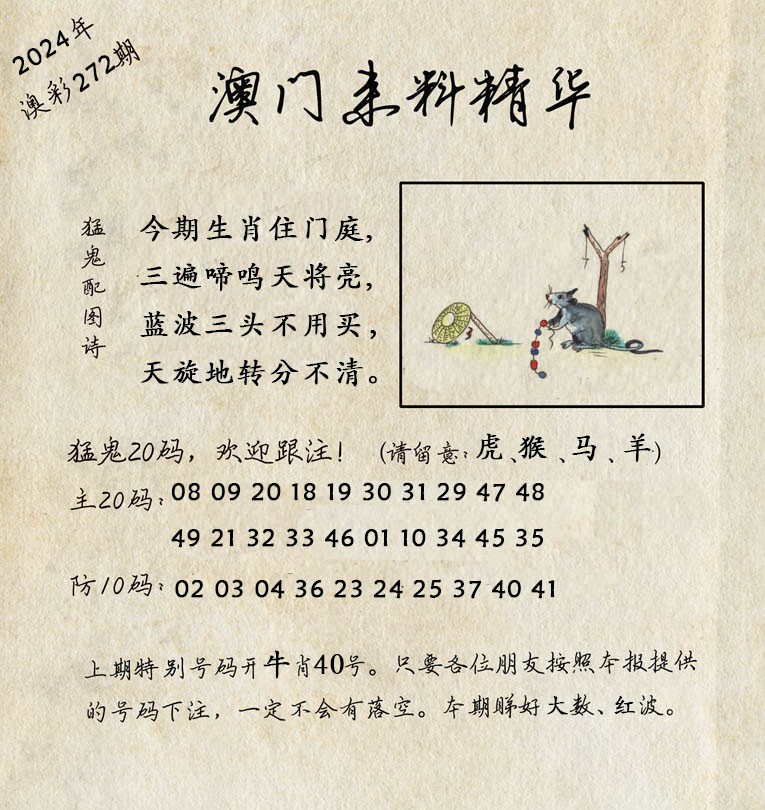 2024年
澳彩272期
澳门来料精华
猛鬼配图诗
今期生肖住门庭，
三遍啼鸣天将亮，
蓝波三头不用买，
天旋地转分不清。
3
7
5
猛鬼20码，欢迎跟注！（请留意：虎、猴、马、羊）
主20码：08 09 20 18 19 30 31 29 47 48
49 21 32 33 46 01 10 34 45 35
防10码：02 03 04 36 23 24 25 37 40 41
上期特别号码开牛肖40号。只要各位朋友按照本报提供
的号码下注，一定不会有落空。本期睇好大数、红波。